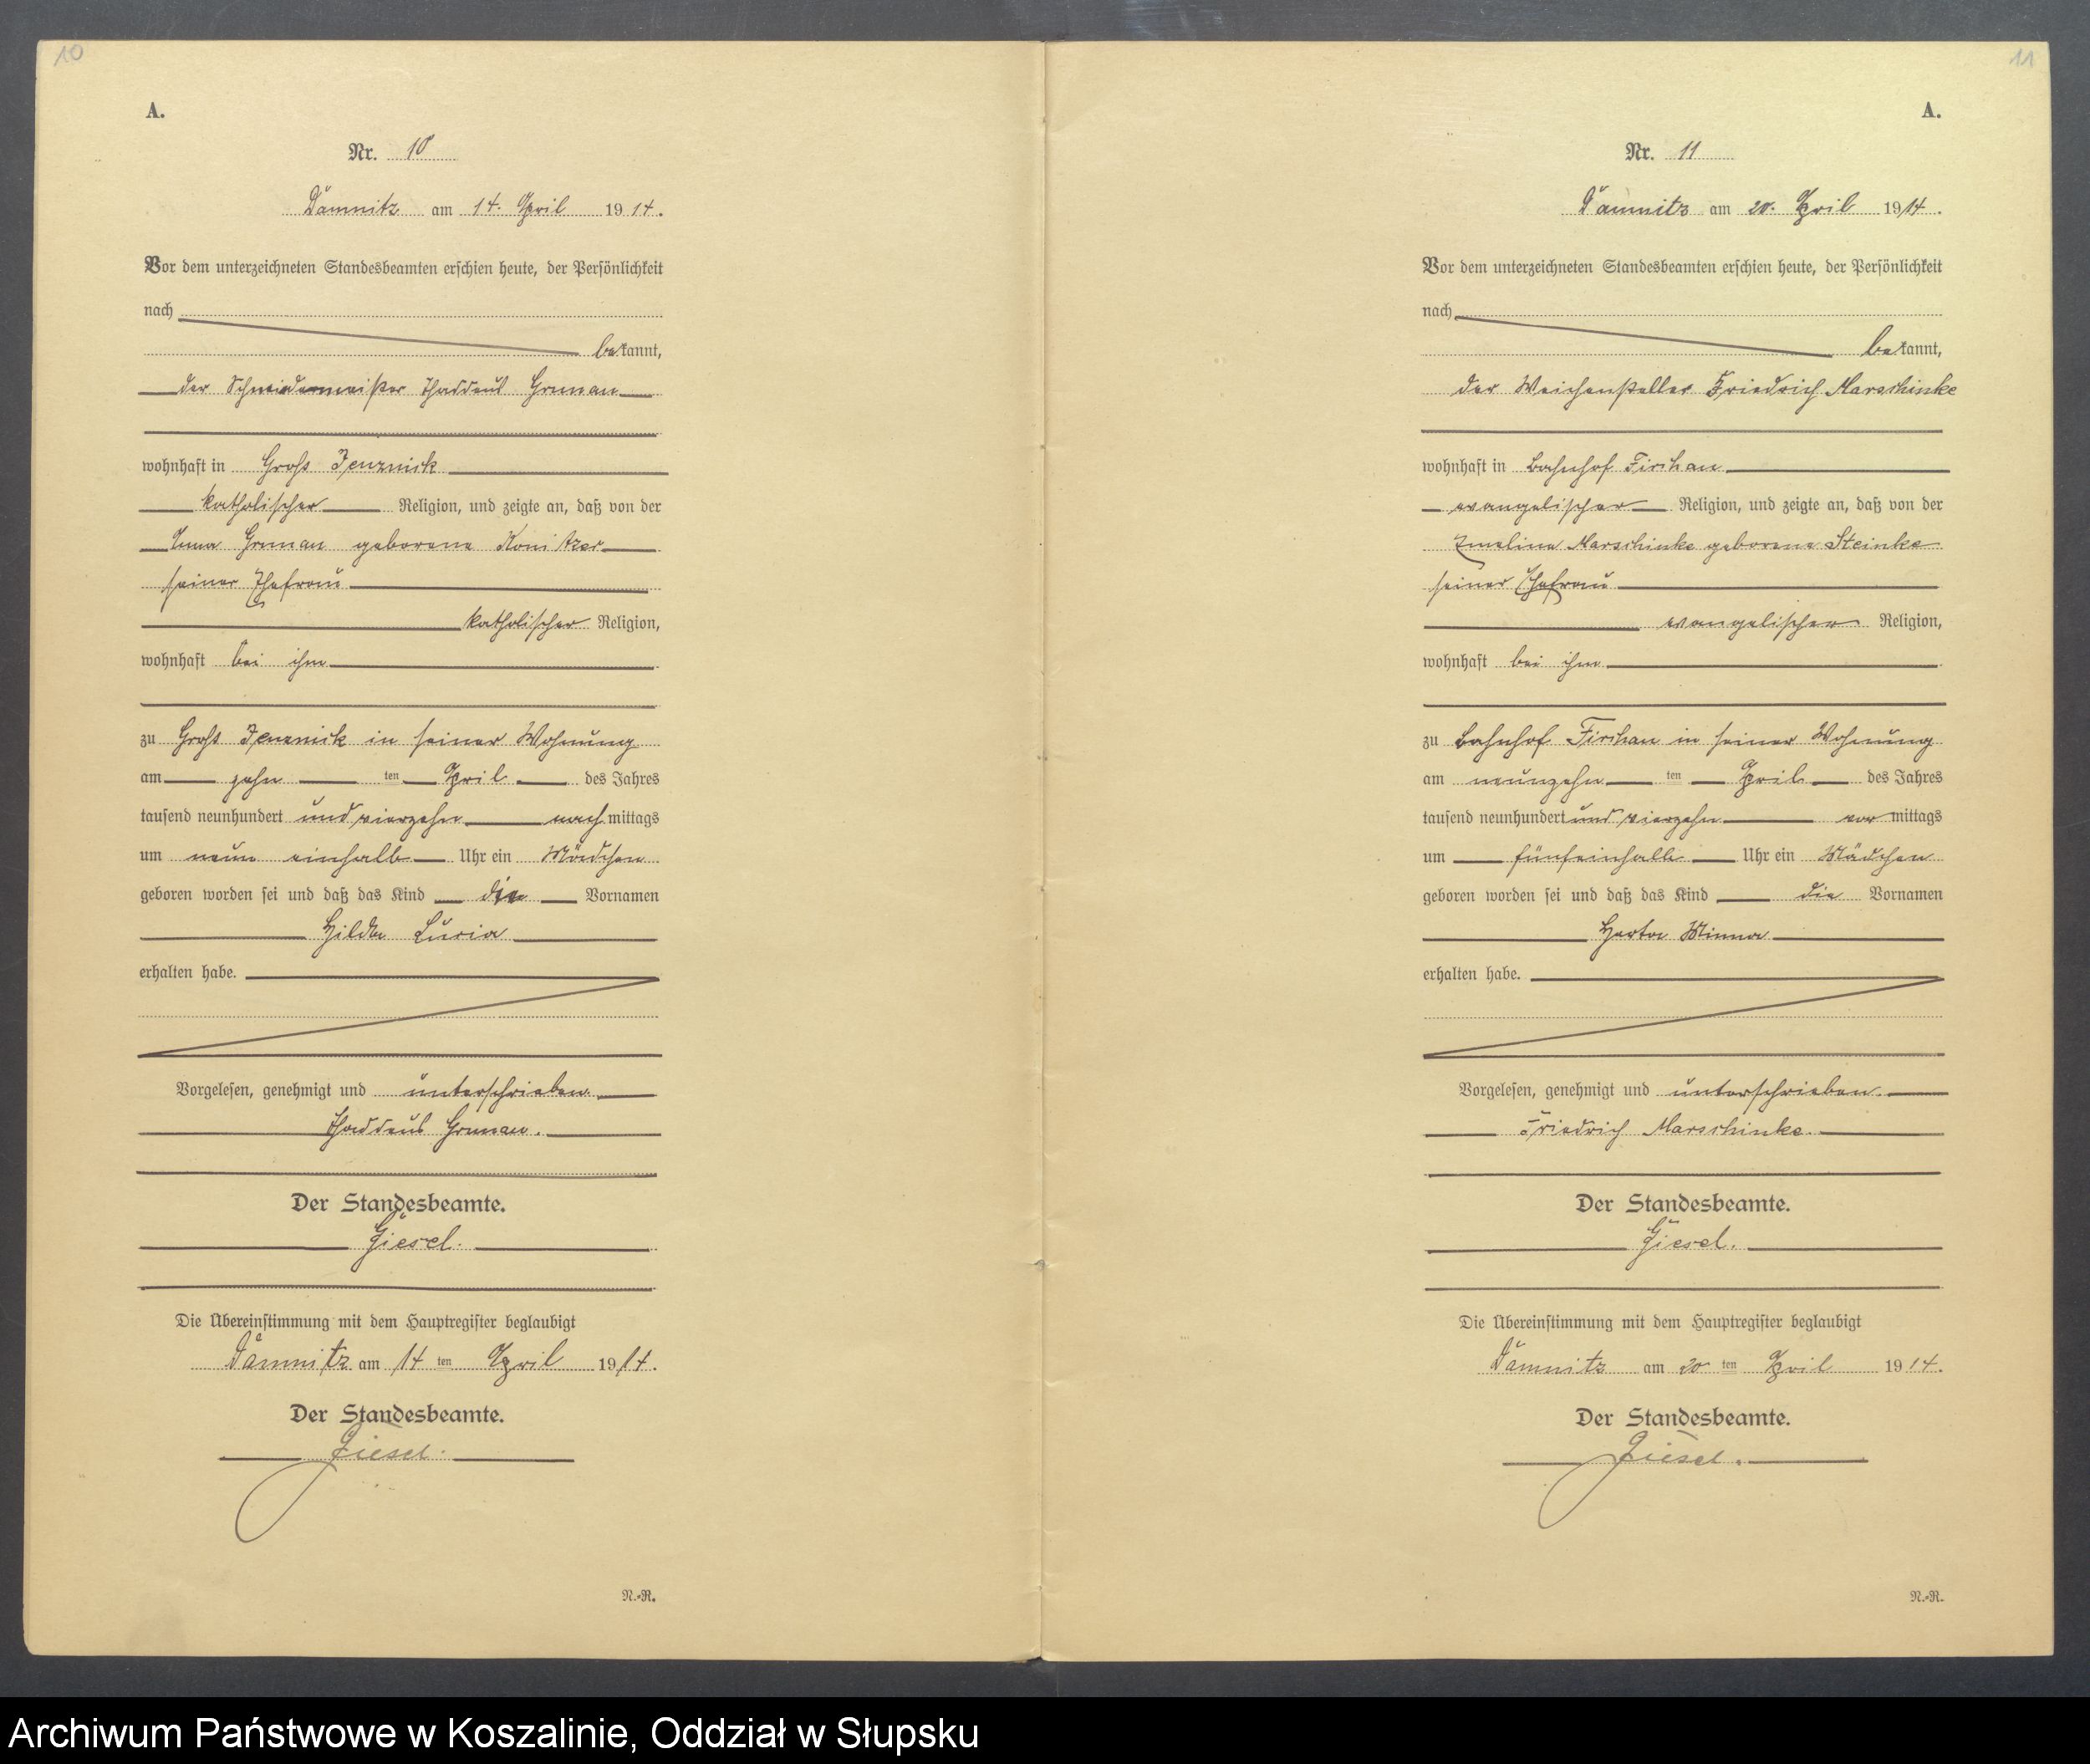 10
A.
Nr. 10
Dämnitz am 14. April 1914.
Vor dem unterzeichneten Standesbeamten erschien heute, der Persönlichkeit
nach
bekannt,
der Schneidermeister Thaddeus Grunau
wohnhaft in Groß Jenznick
katholischer Religion, und zeigte an, daß von der
Grunau geborene Konitzer
seiner Ehefrau
katholischer Religion,
wohnhaft bei ihm
zu Groß Jenznick in seiner Wohnung
am zehn ten April des Jahres
tausend neunhundert und vierzehn nach mittags
um neun einhalb Uhr ein Mädchen
geboren worden sei und daß das Kind die Vornamen
Hilda Luzia
erhalten habe.
Vorgelesen, genehmigt und unterschrieben
Thaddeus Grunau.
Der Standesbeamte.
Giesel.
Die Übereinstimmung mit dem Hauptregister beglaubigt
Dämnitz am 14 ten April 1914.
Der Standesbeamte.
Giesel.
N.-R.
11
A.
Nr. 11
Dämnitz am 20. April 1914.
Vor dem unterzeichneten Standesbeamten erschien heute, der Persönlichkeit
nach
bekannt,
der Weichensteller Friedrich Marschinke
wohnhaft in Bahnhof Firchau
evangelischer Religion, und zeigte an, daß von der
Emeline Marschinke geborene Steinke
seiner Ehefrau
evangelischer Religion,
wohnhaft bei ihm
zu Bahnhof Firchau in seiner Wohnung
am neunzehn ten April des Jahres
tausend neunhundert und vierzehn vor mittags
um fünfeinhalb Uhr ein Mädchen
geboren worden sei und daß das Kind die Vornamen
Herta Minna
erhalten habe.
Vorgelesen, genehmigt und unterschrieben.
Friedrich Marschinke.
Der Standesbeamte.
Giesel.
Die Übereinstimmung mit dem Hauptregister beglaubigt
Dämnitz am 20 ten April 1914.
Der Standesbeamte.
Giesel.
N.-R.
Archiwum Państwowe w Koszalinie, Oddział w Słupsku